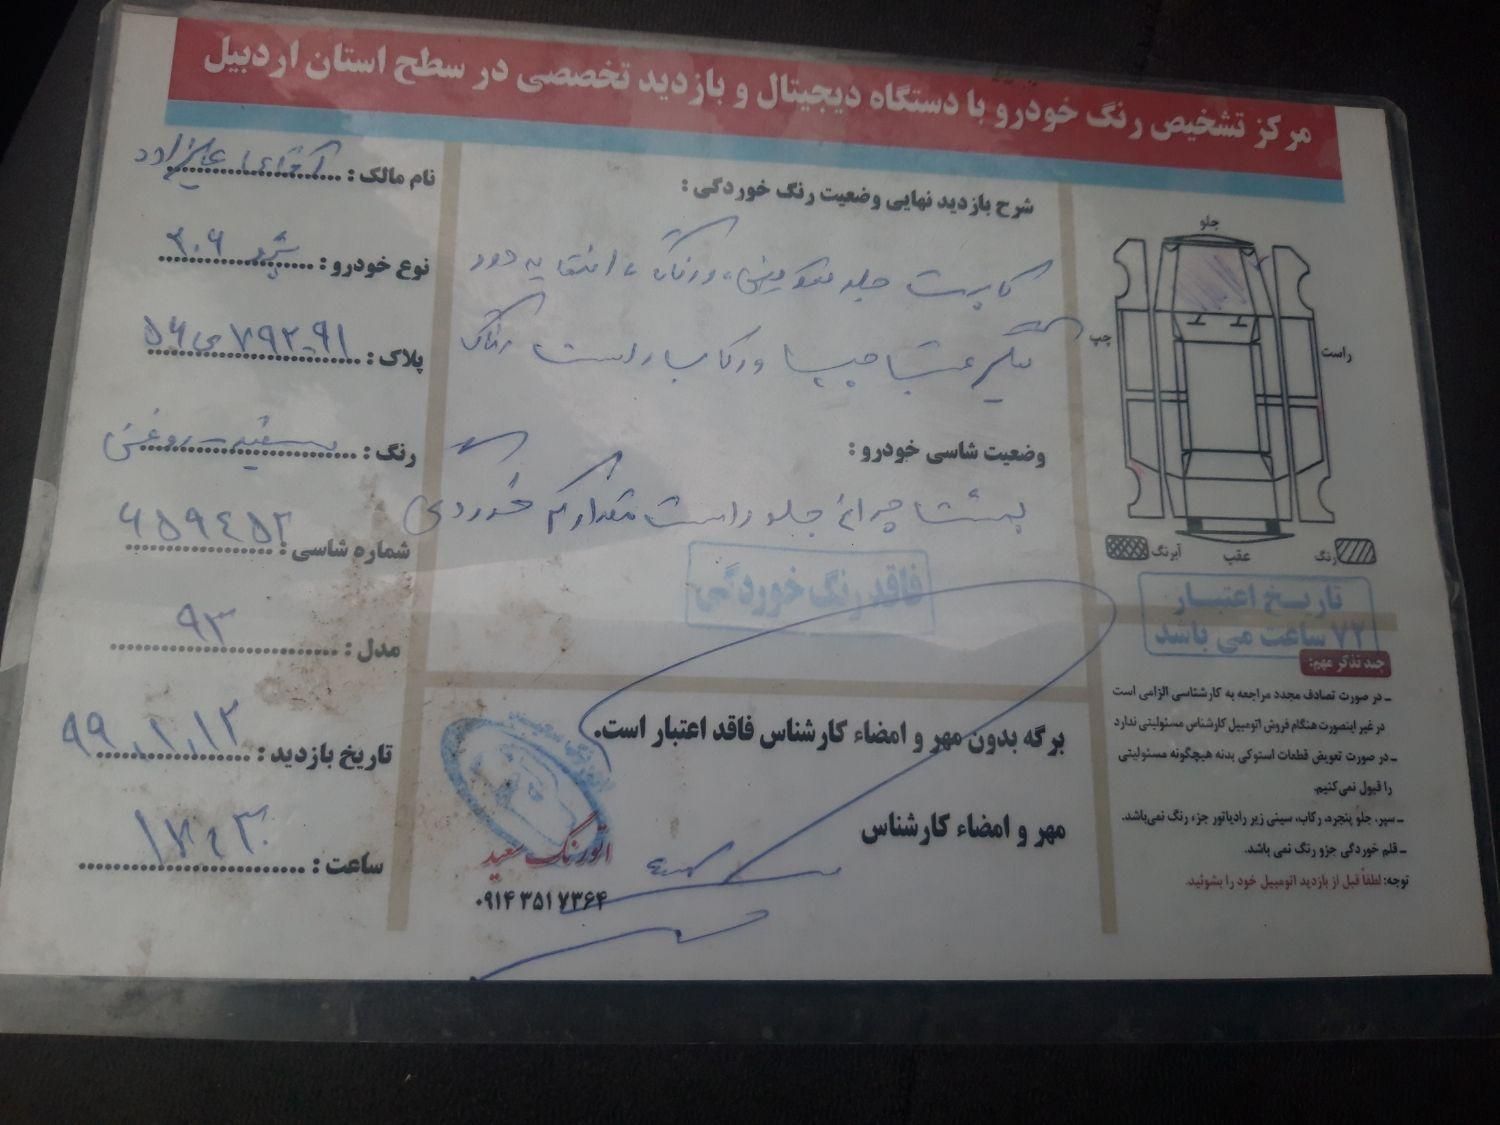 مرکز تشخیص رنگ خودرو با دستگاه دیجیتال و بازدید تخصصی در سطح استان اردبیل
نام مالک : آقای
نوع خودرو : پژو ۲۰۶
پلاک : ۹۱-۷۹۲ی۵۶
رنگ : سفید روغنی
شماره شاسی : ۶۵۹۴۵۲
مدل : ۹۳
تاریخ بازدید : ۹۹،۱،۱۲
ساعت : ۱۷،۳۰
شرح بازدید نهایی وضعیت رنگ خوردگی :
کاپوت جلو تعویض، و رنگ، انتهای دور
گلگیر عقب چپ و رکاب راست رنگ
وضعیت شاسی خودرو :
پشت چراغ جلو راست مقدار کم خوردگی
فاقد رنگ خوردگی
برگه بدون مهر و امضاء کارشناس فاقد اعتبار است.
مهر و امضاء کارشناس
اتورنگ سعید
۰۹۱۴ ۳۵۱ ۷۳۶۴
جلو
چپ
راست
عقب
آبرنگ
رنگ
تاریخ اعتبار
۷۲ ساعت می باشد
چند تذکر مهم:
ـ در صورت تصادف مجدد مراجعه به کارشناسی الزامی است
در غیر اینصورت هنگام فروش اتومبیل کارشناس مسئولیتی ندارد
ـ در صورت تعویض قطعات استوکی بدنه هیچگونه مسئولیتی
را قبول نمی‌کنیم.
ـ سپر، جلو پنجره، رکاب، سینی زیر رادیاتور جزء رنگ نمی‌باشد.
ـ قلم خوردگی جزو رنگ نمی باشد.
توجه: لطفاً قبل از بازدید اتومبیل خود را بشوئید.